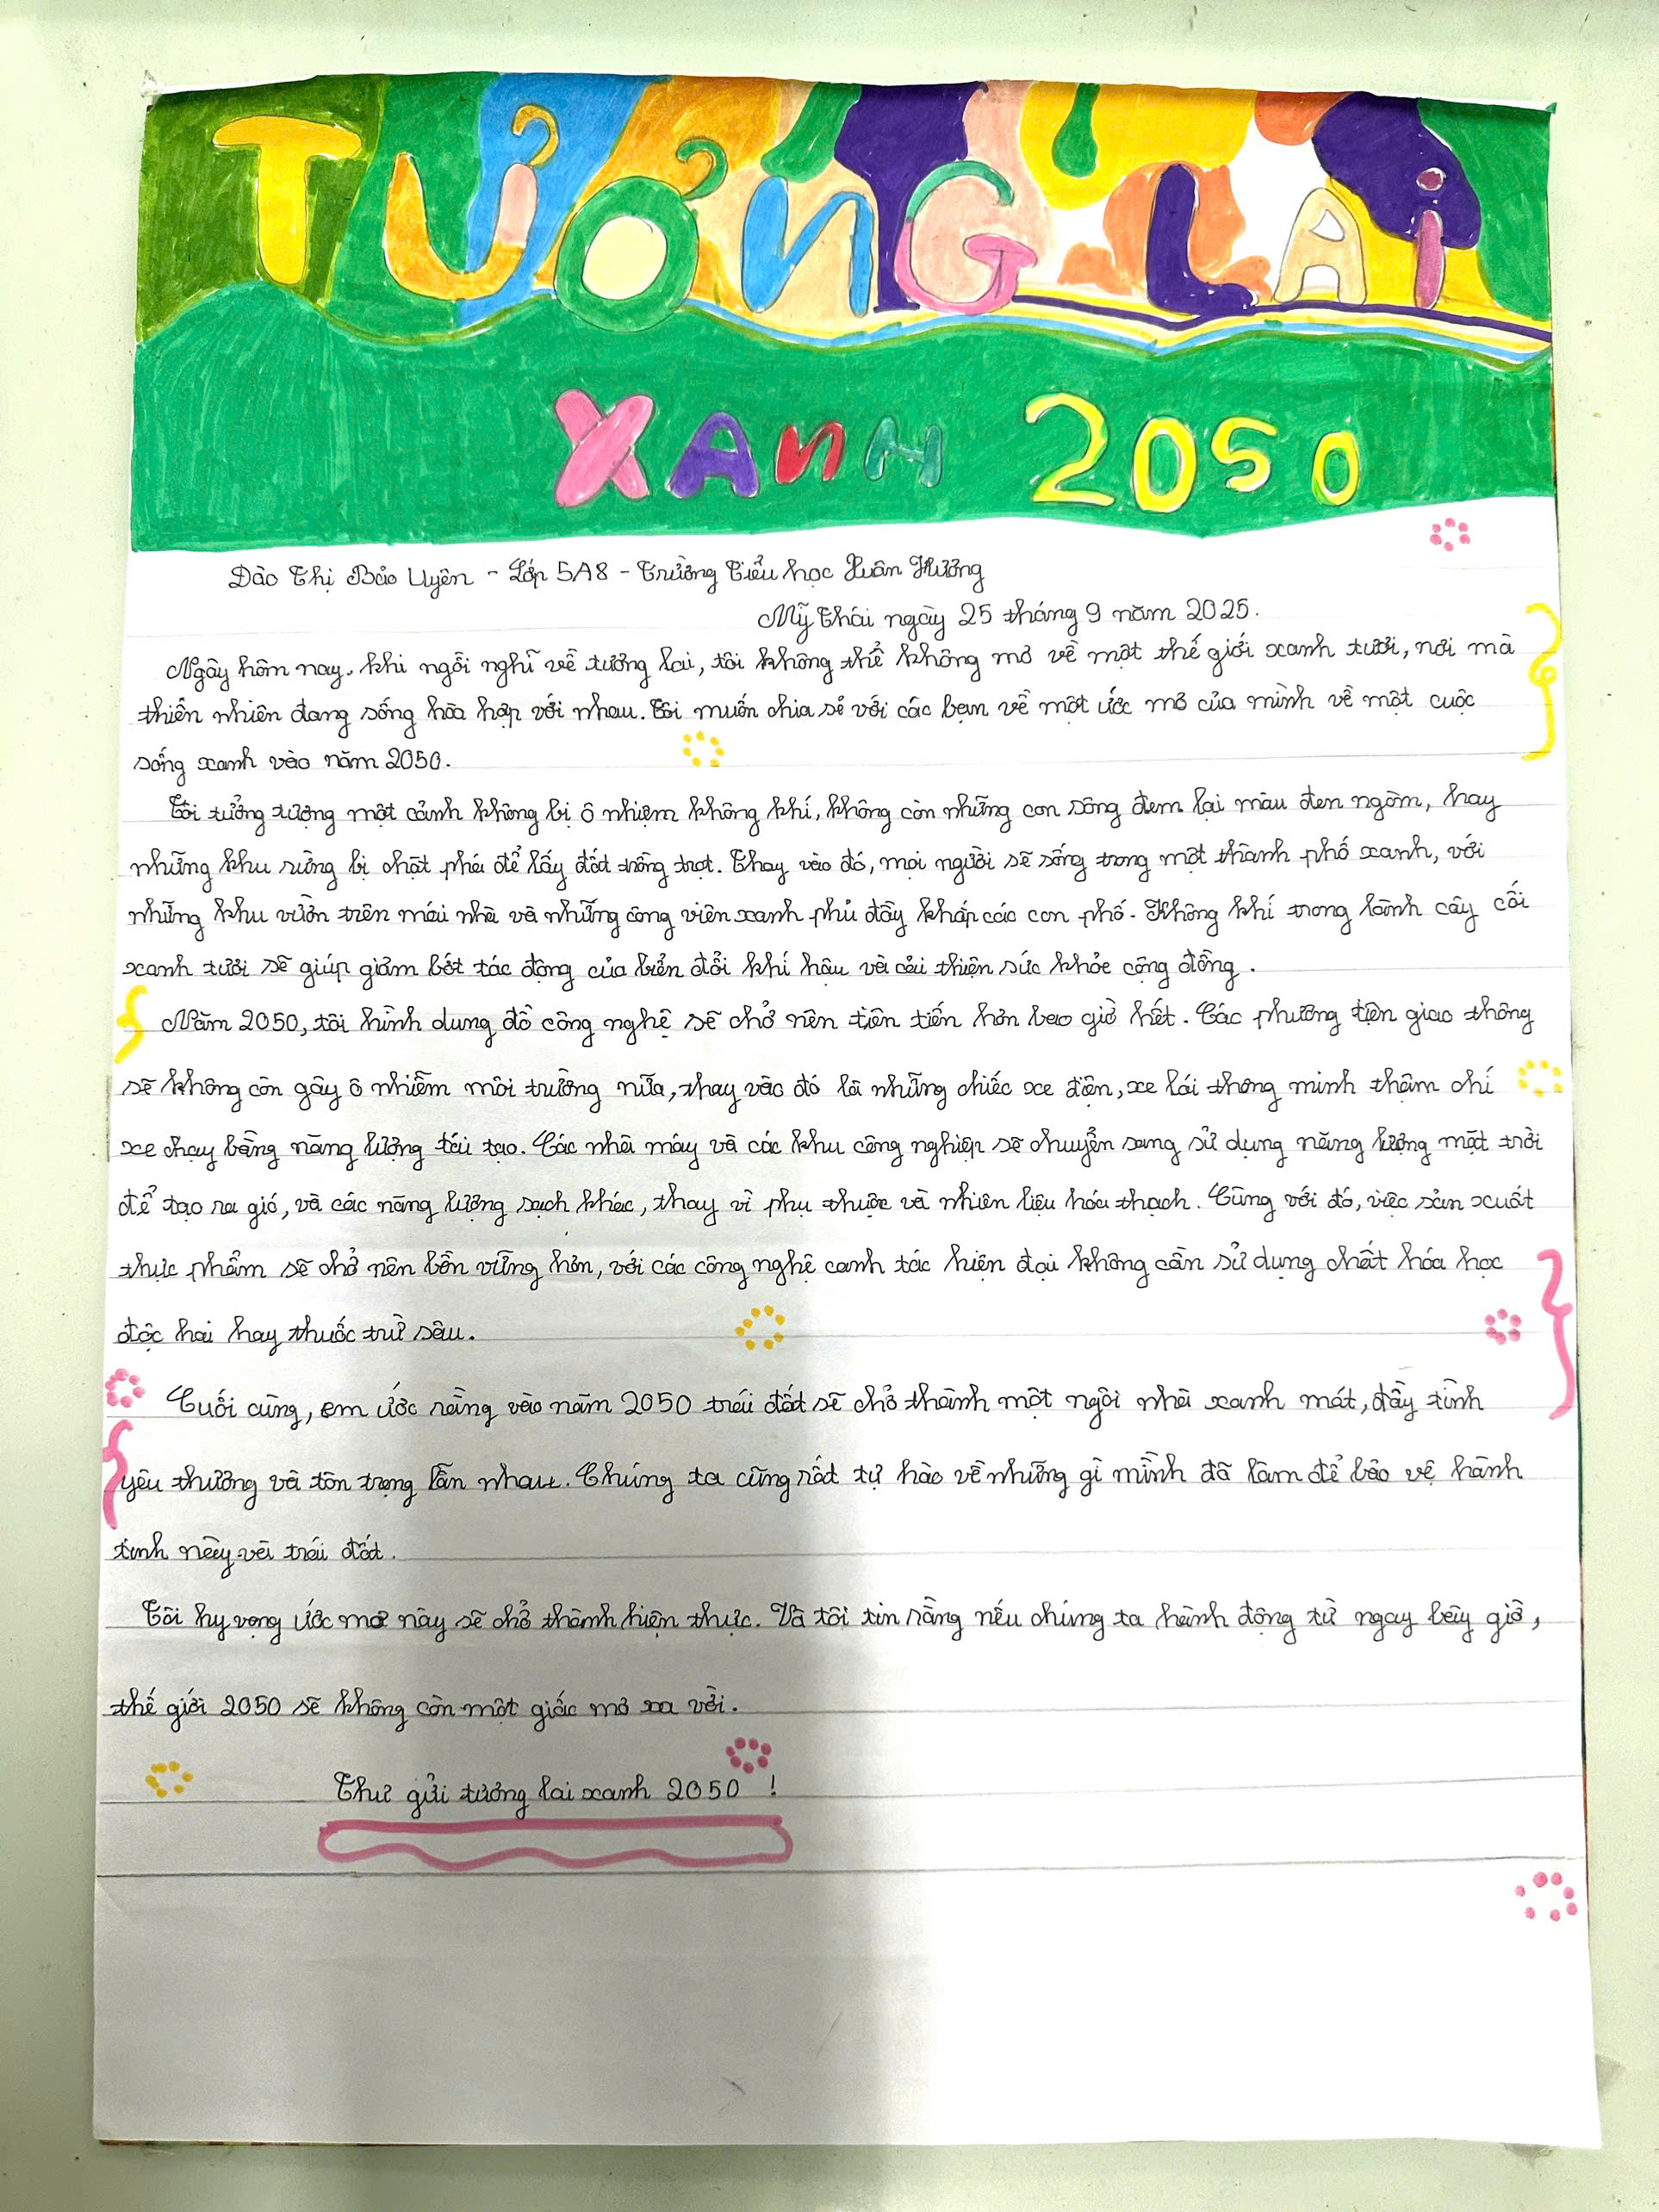 TƯỞNG LAI
XANH 2050
Đào Thị Bảo Uyên - Lớp 5A8 - Trường Tiểu học Xuân Hương
Mỹ Thái ngày 25 tháng 9 năm 2025.
Ngày hôm nay. khi ngồi nghĩ về tương lai, tôi không thể không mơ về một thế giới xanh tươi, nơi mà
thiên nhiên đang sống hòa hợp với nhau. Tôi muốn chia sẻ với các bạn về một ước mơ của mình về một cuộc
sống xanh vào năm 2050.
Tôi tưởng tượng một cảnh không bị ô nhiệm không khí, không còn những con sông đem lại màu đen ngòm, hay
những khu rừng bị chặt phá để lấy đất trồng trọt. Thay vào đó, mọi người sẽ sống trong một thành phố xanh, với
những khu vườn trên mái nhà và những công viên xanh phủ đầy khắp các con phố. Không khí trong lành cây cối
xanh tươi sẽ giúp giảm bớt tác động của biển đổi khí hậu và cải thiện sức khỏe cộng đồng.
Năm 2050, tôi hình dung đồ công nghệ sẽ chở nên tiên tiến hơn bao giờ hết. Các phương tiện giao thông
sẽ không còn gây ô nhiễm môi trường nữa, thay vào đó là những chiếc xe điện, xe lái thông minh thậm chí
xe chạy bằng năng lượng tái tạo. Các nhà máy và các khu công nghiệp sẽ chuyển sang sử dụng năng lượng mặt trời
để tạo ra gió, và các năng lượng sạch khác, thay vì phụ thuộc và nhiên liệu hóa thạch. Cùng với đó, việc sản xuất
thực phẩm sẽ chở nên bền vững hơn, với các công nghệ canh tác hiện đại không cần sử dụng chất hóa học
độc hai hay thuốc trừ sâu.
Cuối cùng, em ước rằng vào năm 2050 trái đất sẽ chở thành một ngôi nhà xanh mát, đầy tình
yêu thương và tôn trọng lẫn nhau. Chúng ta cũng rất tự hào về những gì mình đã làm để bảo vệ hành
tinh này và trái đất.
Tôi hy vọng ước mơ này sẽ chở thành hiện thực. Và tôi tin rằng nếu chúng ta hành động từ ngay bây giờ,
thế giới 2050 sẽ không còn một giấc mơ xa vời.
Thư gửi tương lai xanh 2050 !